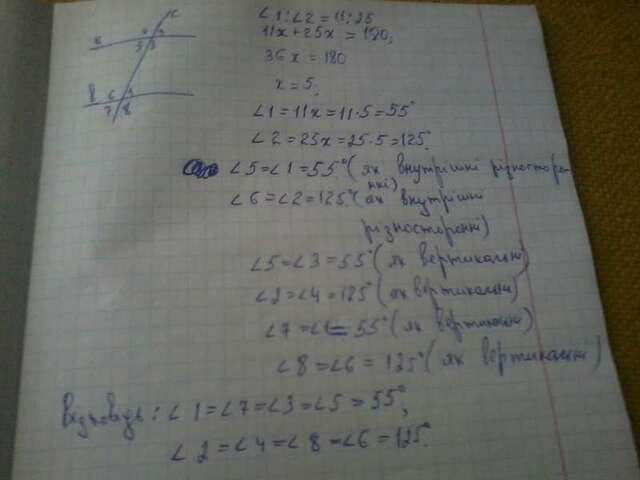 ∠1:∠2 = 11:25
11x + 25x = 180;
36x = 180
x = 5.
∠1 = 11x = 11·5 = 55°
∠2 = 25x = 25·5 = 125°.
∠5 = ∠1 = 55° (як внутрішні різносторон
нні)
∠6 = ∠2 = 125° (як внутрішні
різносторонні)
∠5 = ∠3 = 55° (як вертикальні)
∠2 = ∠4 = 125° (як вертикальні)
∠7 = ∠1 = 55° (як вертикальні)
∠8 = ∠6 = 125° (як вертикальні)
Відповідь: ∠1 = ∠7 = ∠3 = ∠5 = 55°,
∠2 = ∠4 = ∠8 = ∠6 = 125°.